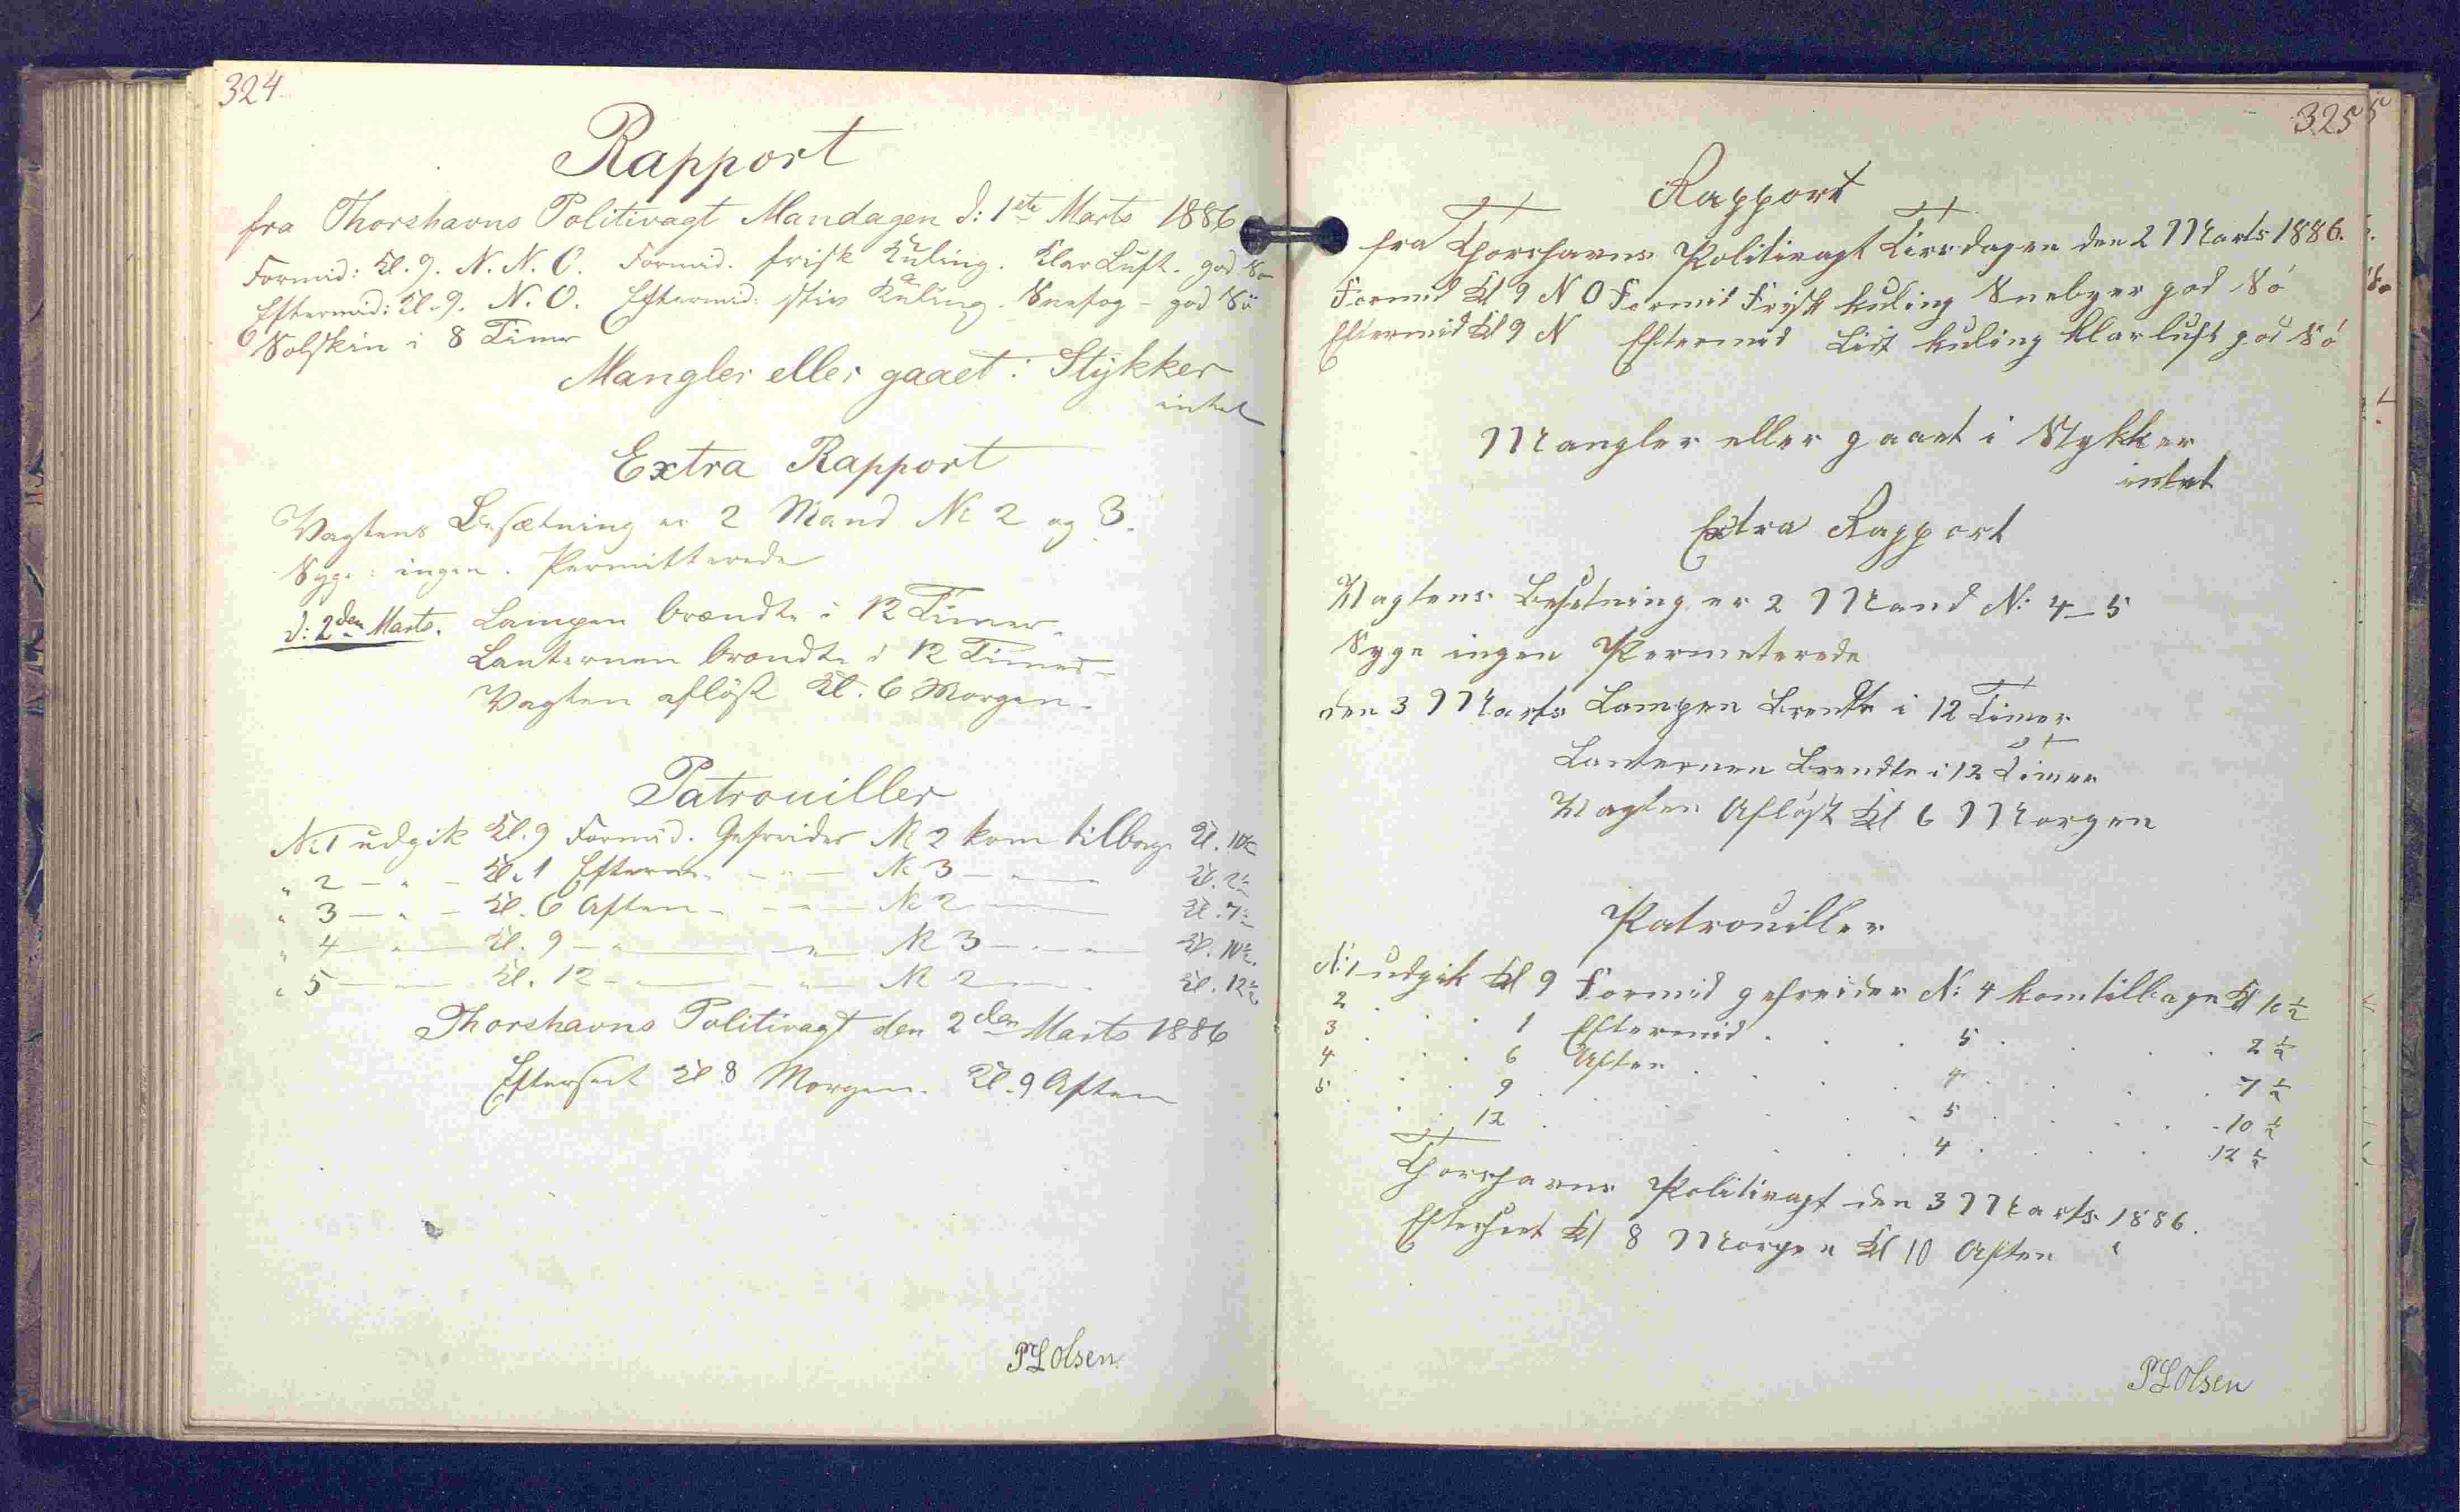 324
Rapport
fra Thorshavns Politivagt Mandagen d: 1ste Marts 1886
Formid: Kl. 9. N. N. O. Formid. frisk Kuling. Klar Luft. god Sø
Eftermid: Kl. 9. N. O. Eftermid: stiv Kuling. Snefog - god Sö
Solskin i 8 Timer
Mangler eller gaaet i Stykker
intet
Extra Rapport
Vagtens Besætning er 2 Mand No 2 og 3.
Syge: ingen. Permitterede
d: 2den Marts. Lampen brændte i 12 Timer.
Lanternen brændte i 12 Timer
Vagten aflöst Kl. 6 Morgen.
Patrouiller
No 1 udgik Kl. 9 Formid. Gefreider No 2 kom tilbage Kl. 10½
" 2 - " - Kl. 1 Efterm. - " - No 3 - " - Kl. 2½
" 3 - " - Kl. 6 Aften - " - No 2 - Kl. 7½
" 4 - " - Kl. 9 - " - " - No 3 - " - Kl. 10½.
" 5 - " - Kl. 12 - " - " - No 2 - " - Kl. 12½
Thorshavns Politivagt den 2den Marts 1886
Efterseet Kl 8 Morgen. Kl. 9 Aften
PLOlsen
325
Rapport
fra Thorshavns Politivagt Tirsdagen den 2 Marts 1886.
Formid Kl 9 N O Formid Frisk kuling Snebyer god Sö
Eftermid Kl 9 N Eftermid Lidt kuling klar luft god Sö
Mangler eller gaaet i Stykker
intet
Extra Rapport
Vagtens Besetning er 2 Mand N: 4-5
Syge ingen Permeterede
den 3 Marts Lampen Brendte i 12 Timer
Lanternen Brendte i 12 Timer
Vagten Aflöst Kl 6 Morgen
Patrouiller
N: 1 udgik Kl 9 Formid gefreider N: 4 kom tilbage Kl 10½
2 . . . 1 Eftermid . . . 5 . . . 2½
3 . . . 6 Aften . . . 4 . . . 7½
4 . . . 9 . . . 5 . . . 10½
5 . . . 12 . . . 4 . . . 12½
Thorshavns Politivagt den 3 Marts 1886.
Efterseet Kl 8 Morgen Kl 10 Aften
PLOlsen